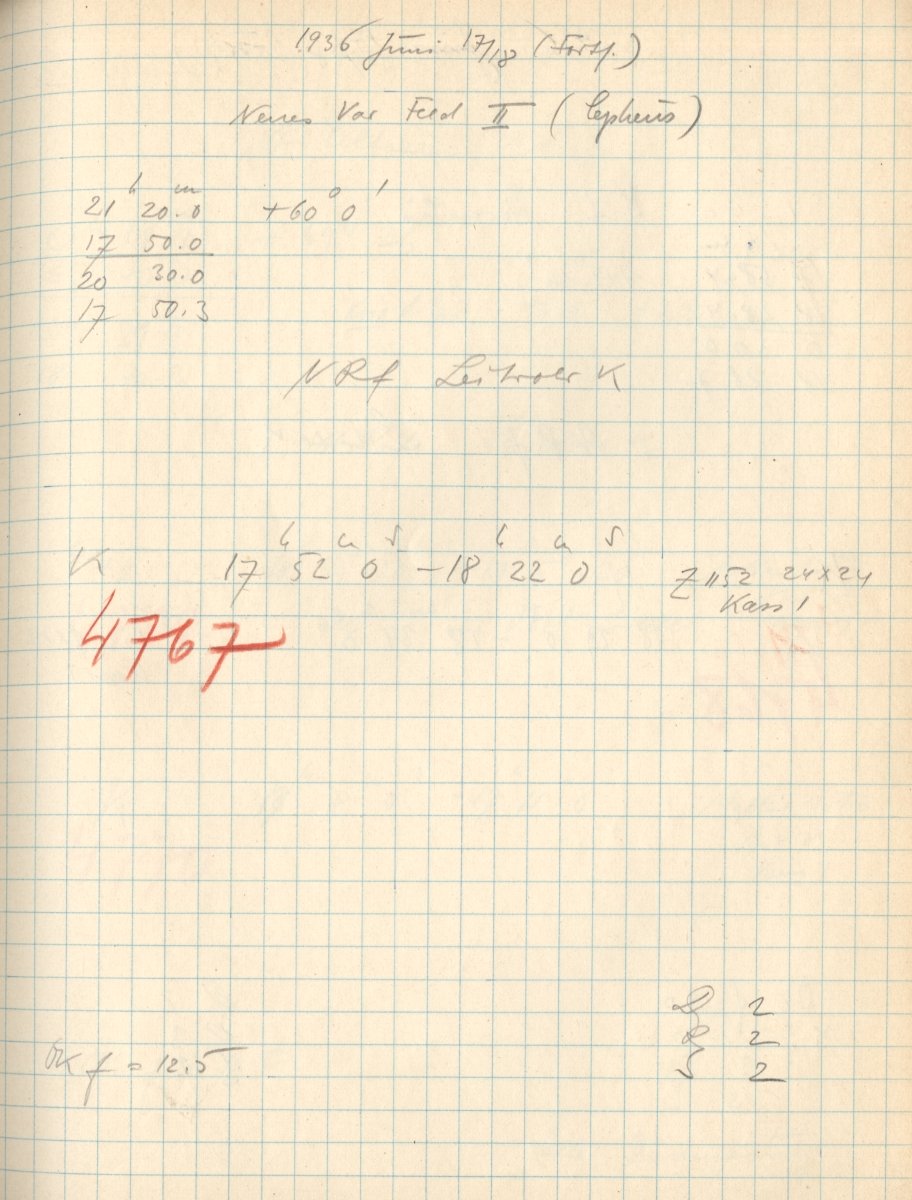 1936 Juni 17/18 (Forts.)
Neues Var Feld II (Cepheus)
h m
21 20.0 +60° 0'
17 50.0
20 30.0
17 50.3
NRf Leitrohr K
h m s h m s
K 17 52 0 – 18 22 0 Z 1152 24x24
Kass 1
4767
D 2
R 2
S 2
f = 12.5